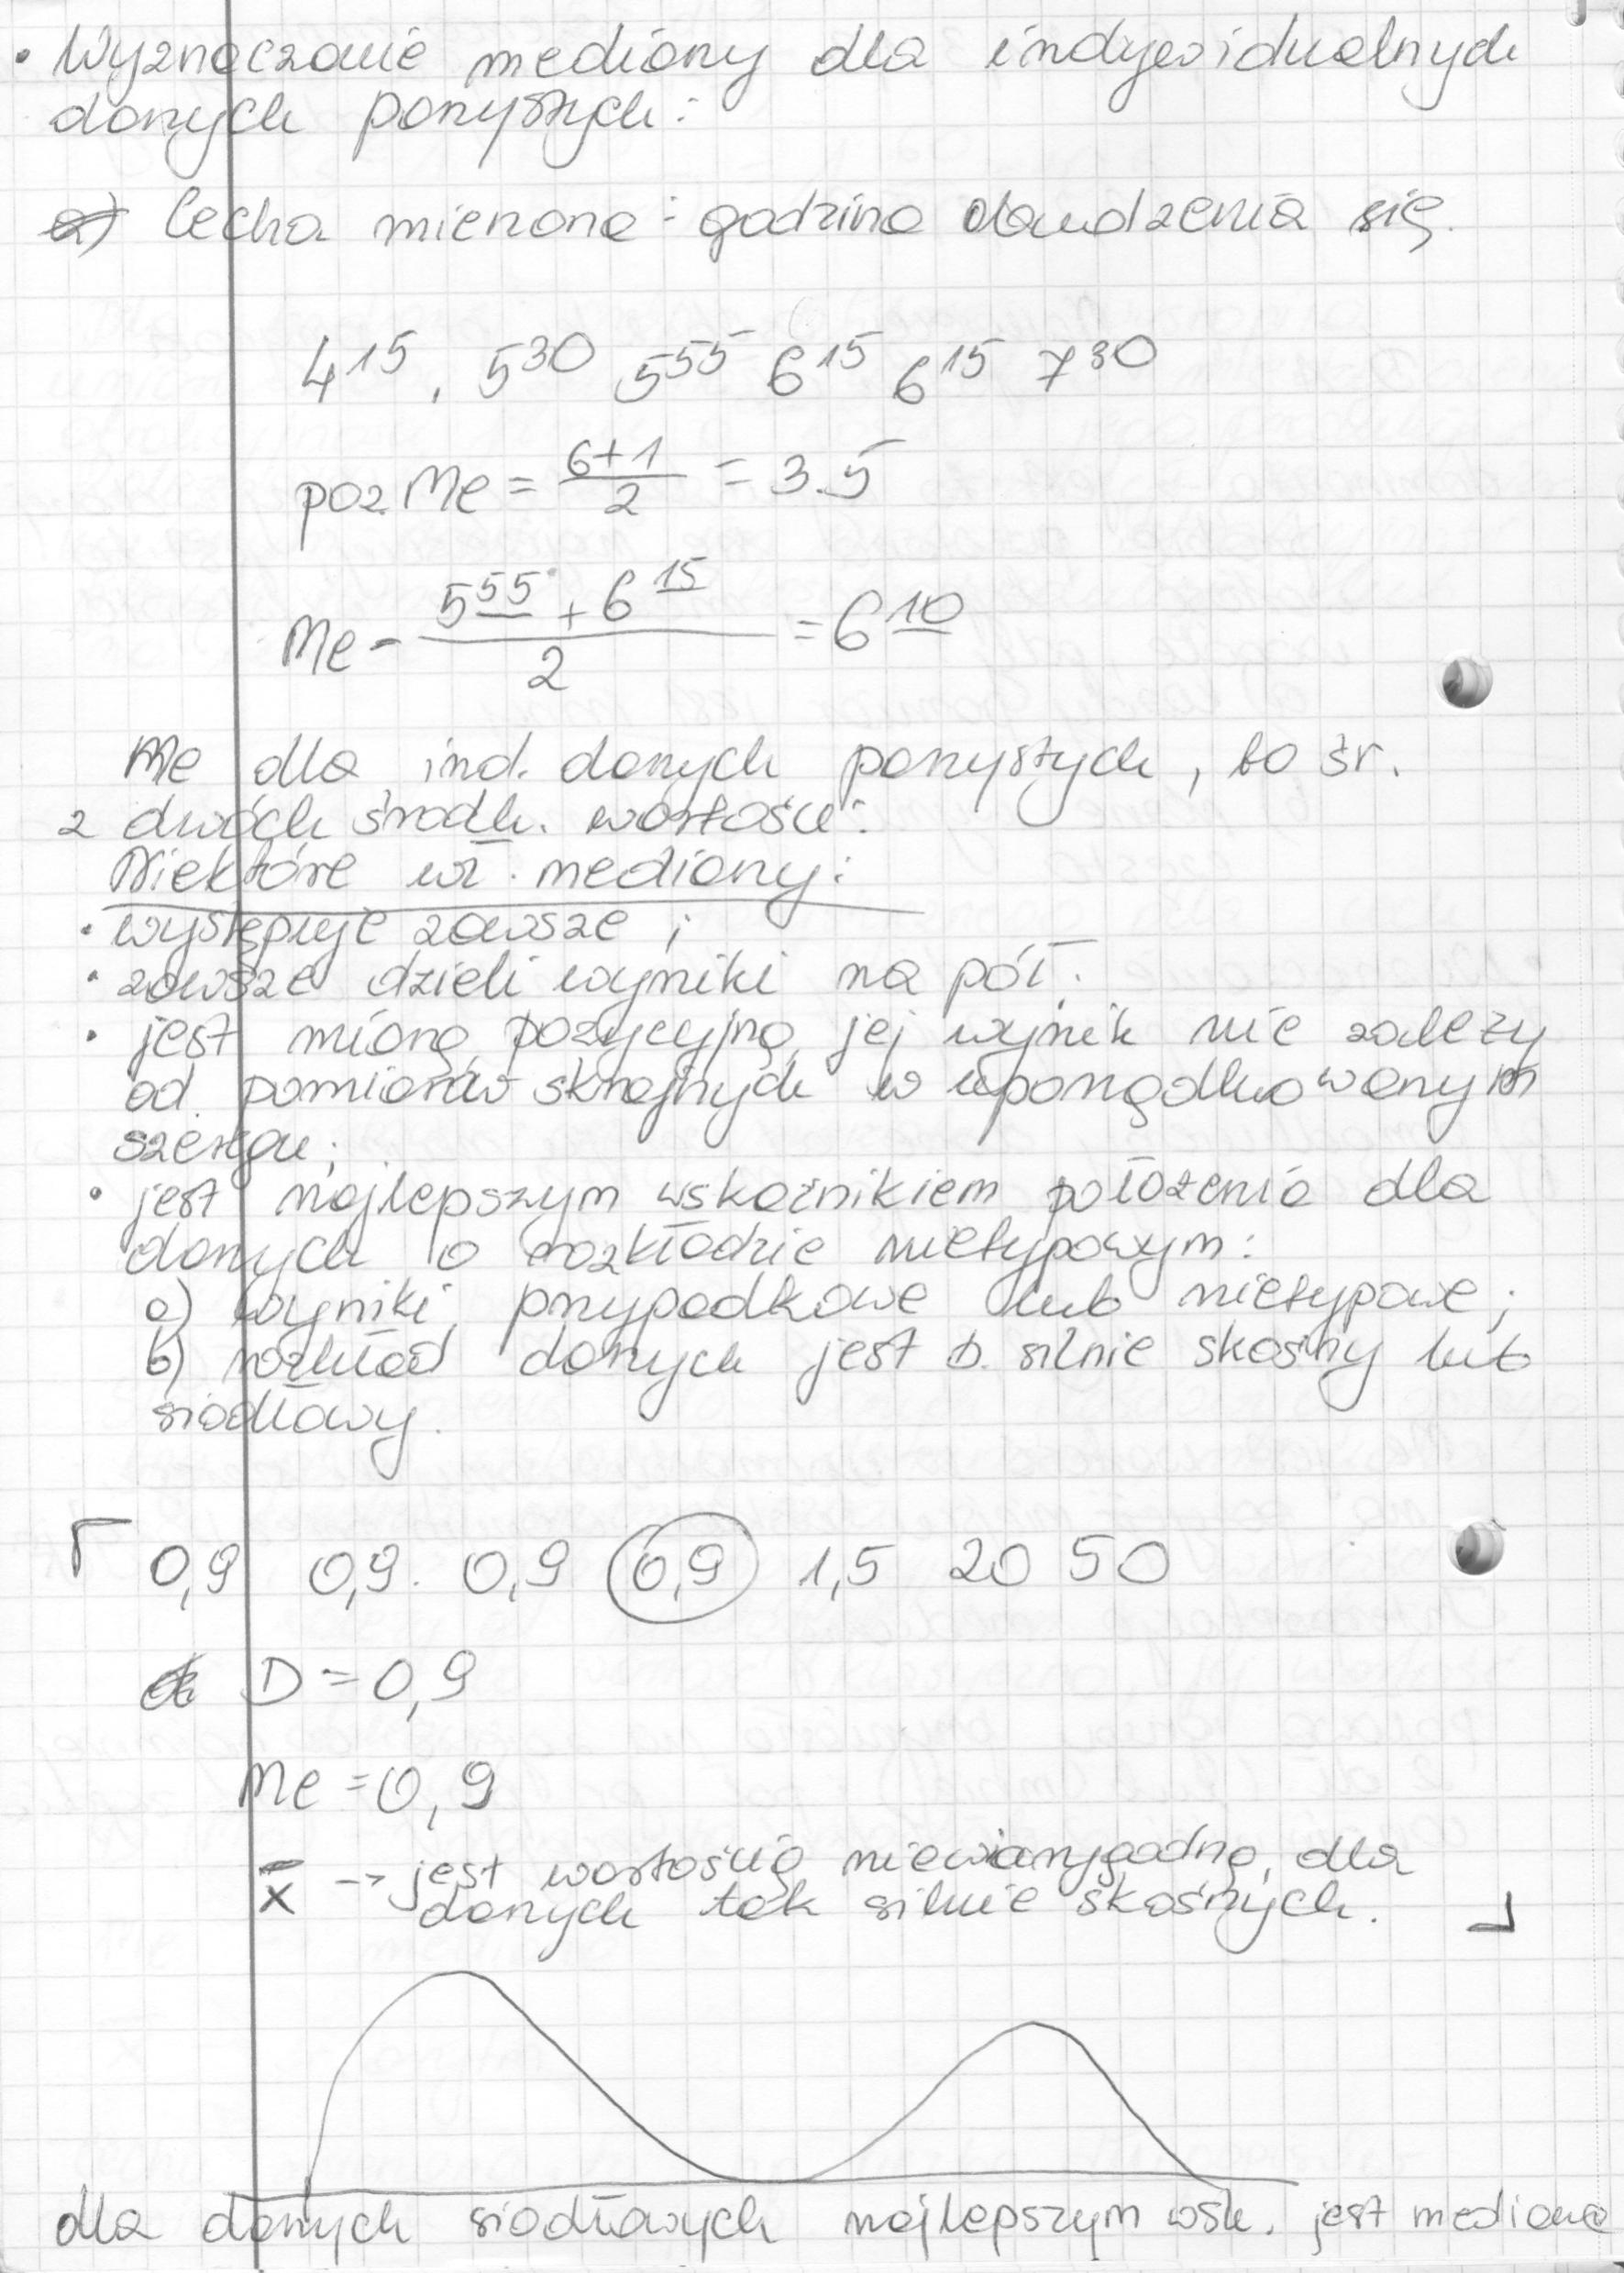 • Wyznaczanie mediany dla indywidualnych
danych parzystych:
a) Cecha mierzona: godzina obudzenia się.
4¹⁵, 5³⁰ 5⁵⁵ 6¹⁵ 6¹⁵ 7³⁰
poz. Me = (6+1)/2 = 3.5
Me = (5⁵⁵ + 6¹⁵)/2 = 6¹⁰
Me dla ind. danych parzystych, to śr.
z dwóch środk. wartości.
Niektóre wł. mediany:
• występuje zawsze;
• zawsze dzieli wyniki na pół;
• jest miarą pozycyjną, jej wynik nie zależy
od pomiarów skrajnych w uporządkowanym
szeregu;
• jest najlepszym wskaźnikiem położenia dla
danych o rozkładzie nietypowym:
a) wyniki przypadkowe lub nietypowe;
b) rozkład danych jest b. silnie skośny lub
siodłowy.
0,9 0,9. 0,9 0,9 1,5 20 50
D = 0,9
Me = 0,9
x̄ → jest wartością niewiarygodną, dla
danych tak silnie skośnych.
dla danych siodłowych najlepszym wsk. jest mediana